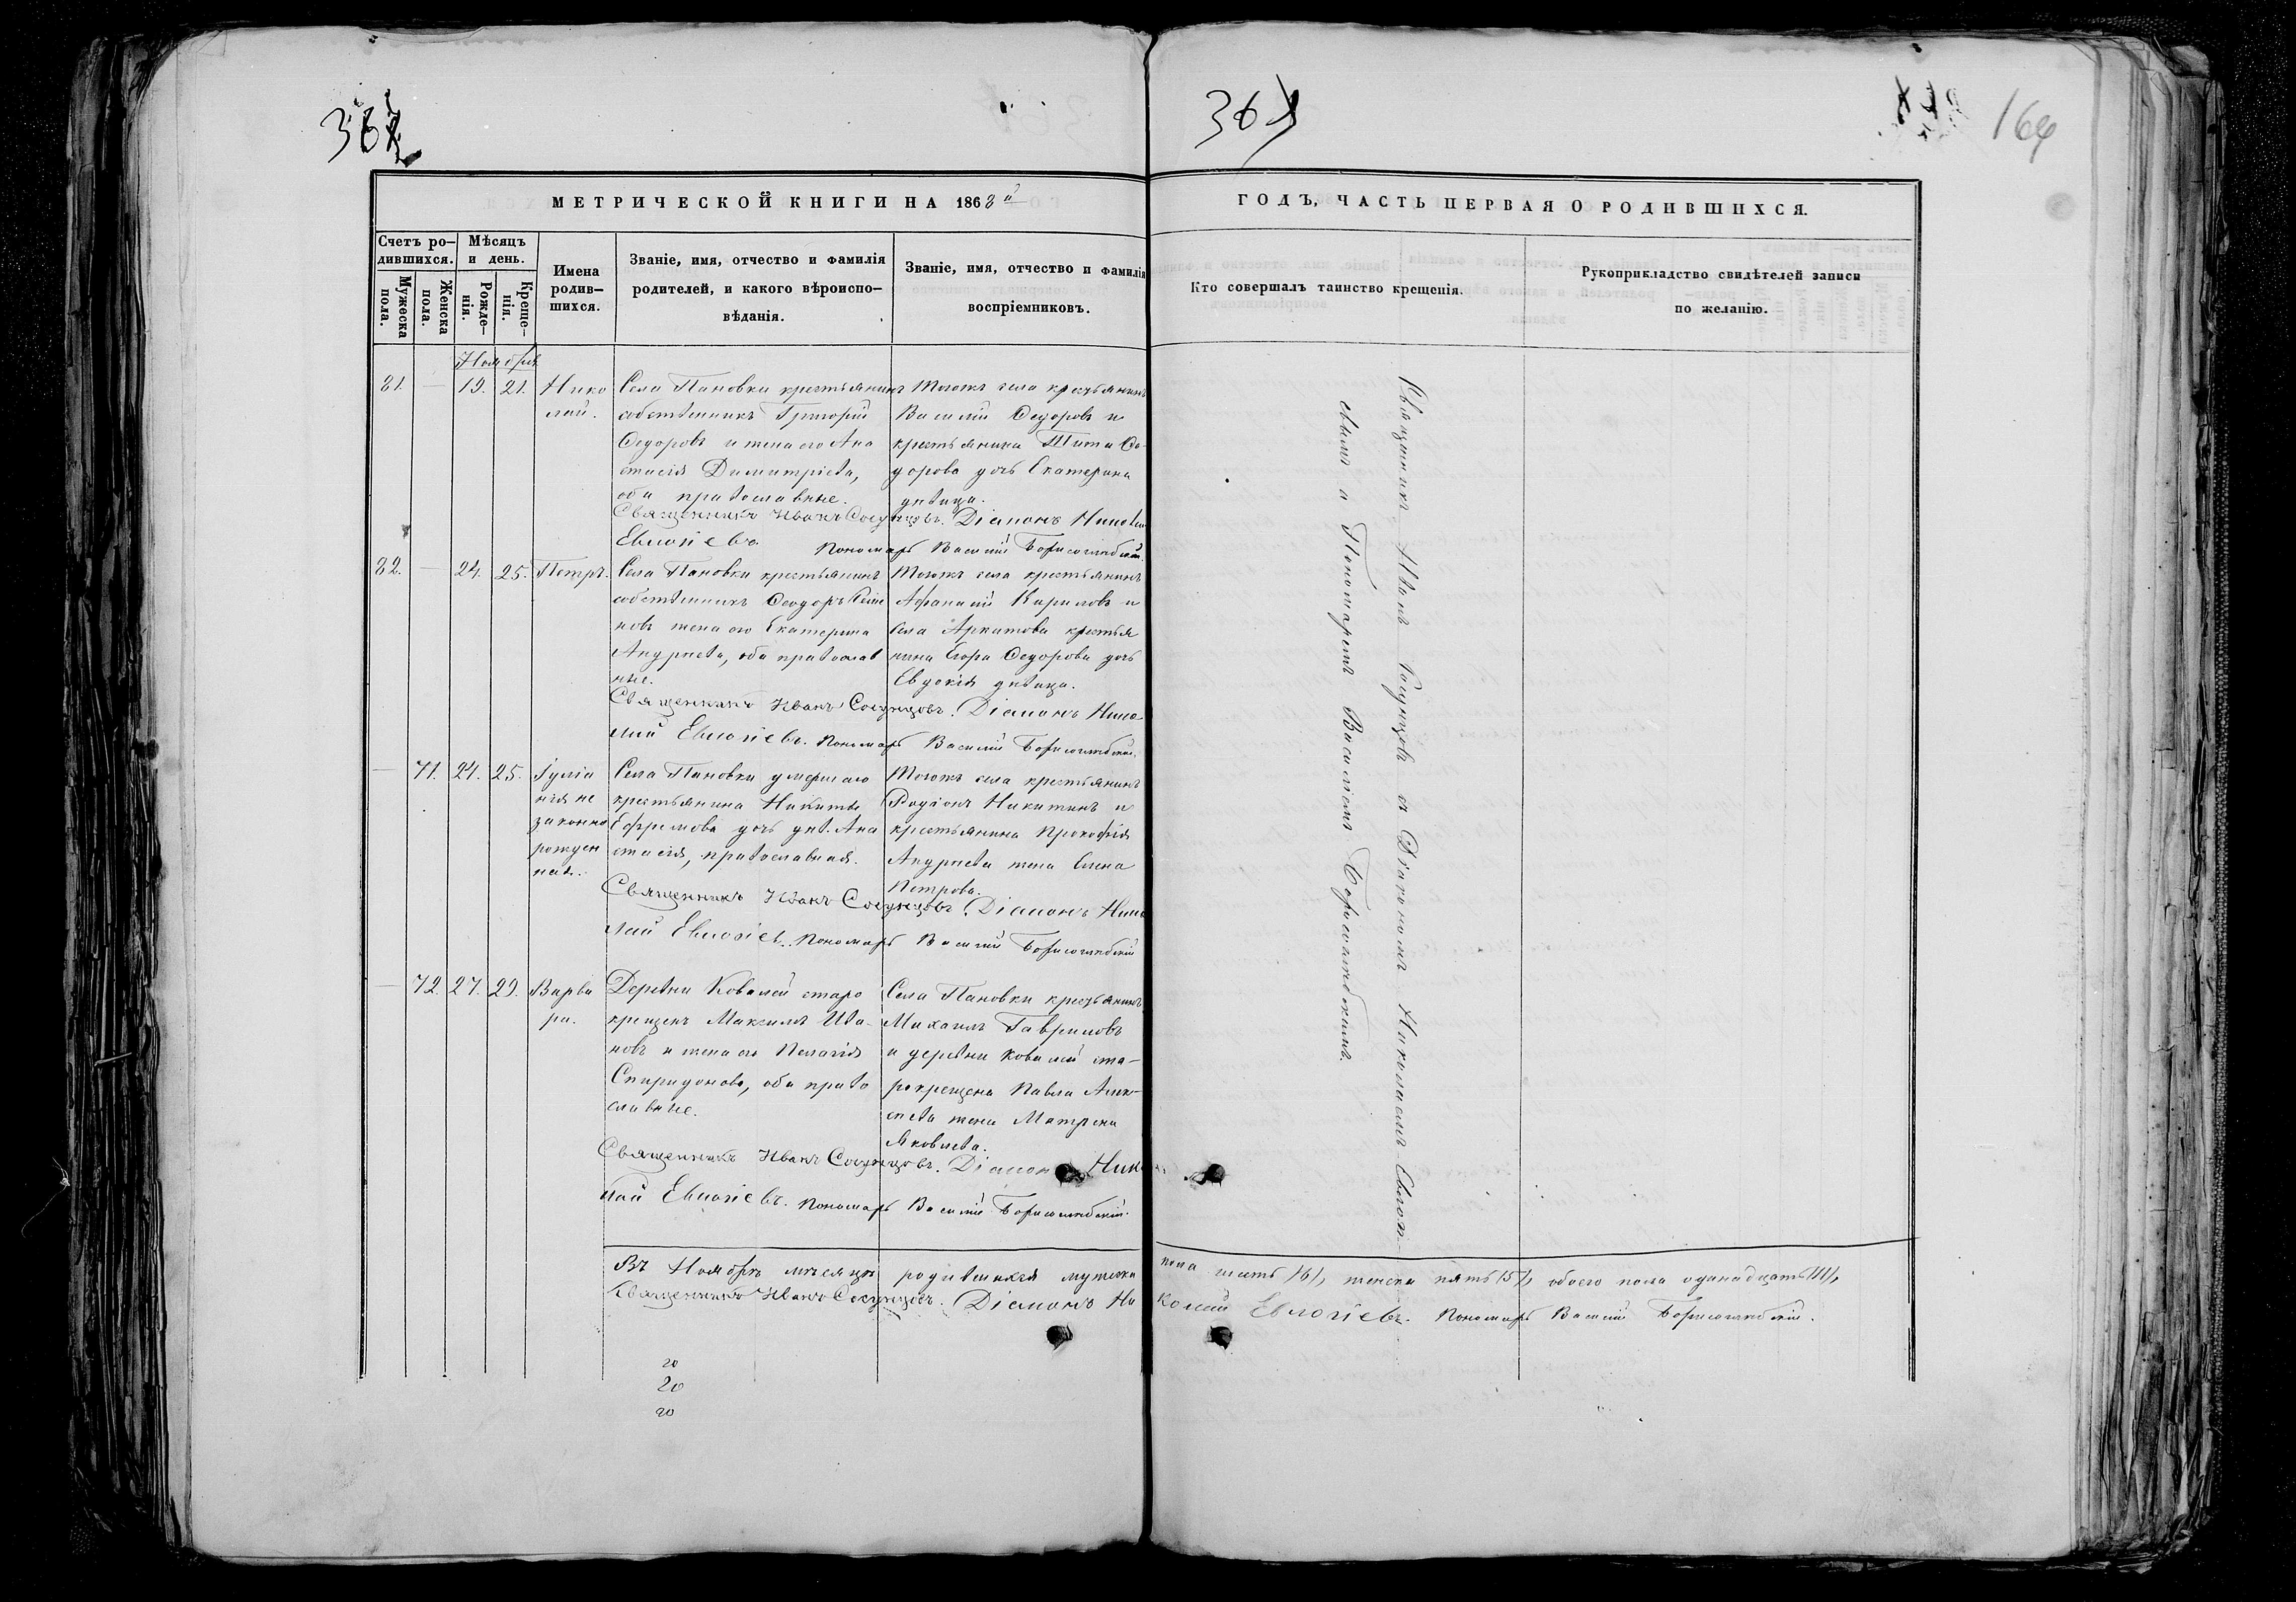 164
МЕТРИЧЕСКОЙ КНИГИ НА 1868й
ГОДЪ, ЧАСТЬ ПЕРВАЯ О РОДИВШИХСЯ.
Счетъ ро-
дившихся.
Мужеска
пола.
Женска
пола.
Мѣсяцъ
и день.
Рожде-
нія.
Креще-
нія.
Имена
родив-
шихся.
Званіе, имя, отчество и фамилія
родителей, и какого вѣроиспо-
вѣданія.
Званіе, имя, отчество и фамилія
воспріемниковъ.
Кто совершалъ таинство крещенія.
Рукоприкладство свидѣтелей записи
по желанію.
Ноября
81. — 19. 21.
Нико
лай.
Села Пановки крестьянинъ
собственникъ Григорій
Ѳедоровъ и жена его Ана
стасія Димитріева,
оба православные.
Тогожъ села крестьянинъ
Василій Ѳедоровъ и
крестьянина Тита Ѳе-
дорова дочь Екатерина
дѣвица.
Священникъ Иванъ Сосунцовъ. Діаконъ Николай
Евлогіевъ Пономарь Василій Борисоглебскій.
82. — 24. 25.
Петръ.
Села Пановки крестьянинъ
собственникъ Ѳеодоръ Семе
новъ жена его Екатерина
Андреева, оба православ
ные.
Тогожъ села крестьянинъ
Афанасій Кириловъ и
села Аркатова крестья
нина Егора Ѳедорова дочь
Евдокія дѣвица.
Священникъ Иванъ Сосунцовъ. Діаконъ Нико
лай Евлогіевъ. Пономарь Василій Борисоглебскій.
— 71. 24. 25.
Іуліа
нія не
законно
рожден
ная.
Села Пановки умершаго
крестьянина Никиты
Ефремова дочь дѣв. Ана
стасія, православная.
Тогожъ села крестьянинъ
Родіонъ Никитинъ и
крестьянина Прокофія
Андреева жена Елена
Петрова.
Священникъ Иванъ Сосунцовъ. Діаконъ Нико
лай Евлогіевъ. Пономарь Василій Борисоглебскій
— 72. 27. 29.
Варва
ра.
Деревни Ковалей старо
крещенъ Максимъ Ива-
новъ и жена его Пелагія
Спиридонова, оба право
славные.
Села Пановки крестьянинъ
Михаилъ Гавриловъ
и деревни Ковалей ста-
рокрещена Павла Алек-
сеева жена Матрена
Яковлева.
Священникъ Иванъ Сосунцовъ. Діаконъ Нико
лай Евлогіевъ. Пономарь Василій Борисоглебскій.
Священникъ Иванъ Сосунцовъ съ Діакономъ Николаемъ Евлогі-
евымъ и Пономаремъ Василіемъ Борисоглебскимъ.
Въ Ноябрѣ мѣсяцѣ родившихся мужеска пола шесть /6/, женска пять /5/, обоего пола одинадцать /11/,
Священникъ Иванъ Сосунцовъ. Діаконъ Николай Евлогіевъ. Пономарь Василій Борисоглебскій.
20
20
20